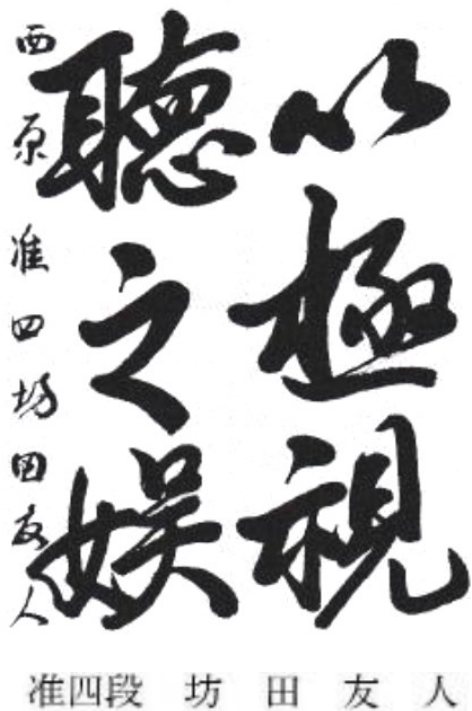 以極視
聴之娯
西原 准四 坊田友人
准四段 坊田友人